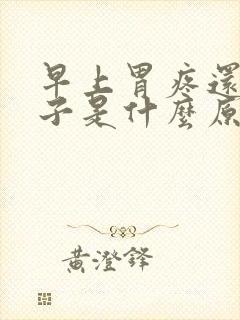 早上胃疼還
子是什麼原
黃澄鋒